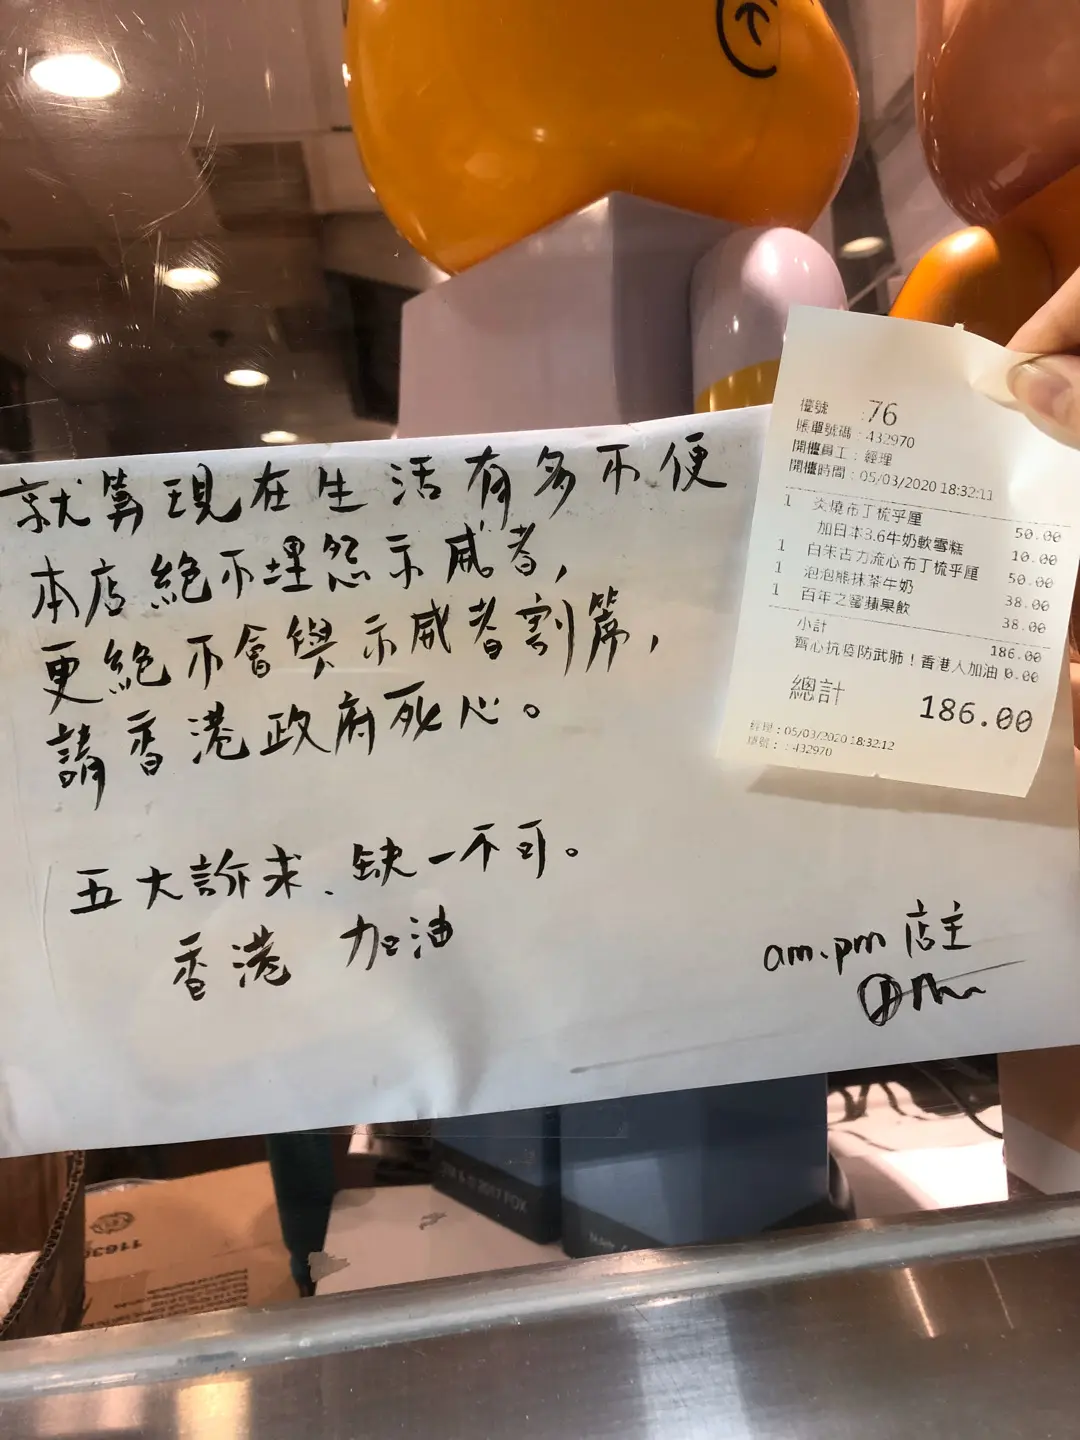 就算現在生活有多不便
本店絕不埋怨示威者,
更絕不會與示威者割席,
請香港政府死心。
五大訴求、缺一不可。
香港 加油
am.pm 店主
檯號 :76
賬單號碼:432970
開檯員工:經理
開檯時間:05/03/2020 18:32:11
1 炎燒布丁梳乎厘 50.00
加日本3.6牛奶軟雪糕 10.00
1 白朱古力流心布丁梳乎厘 50.00
1 泡泡熊抹茶牛奶 38.00
1 百年之蜜蘋果飲 38.00
小計 186.00
齊心抗疫防武肺!香港人加油 0.00
總計 186.00
經理:05/03/2020 18:32:12
單號::432970
2017 FOX
1163